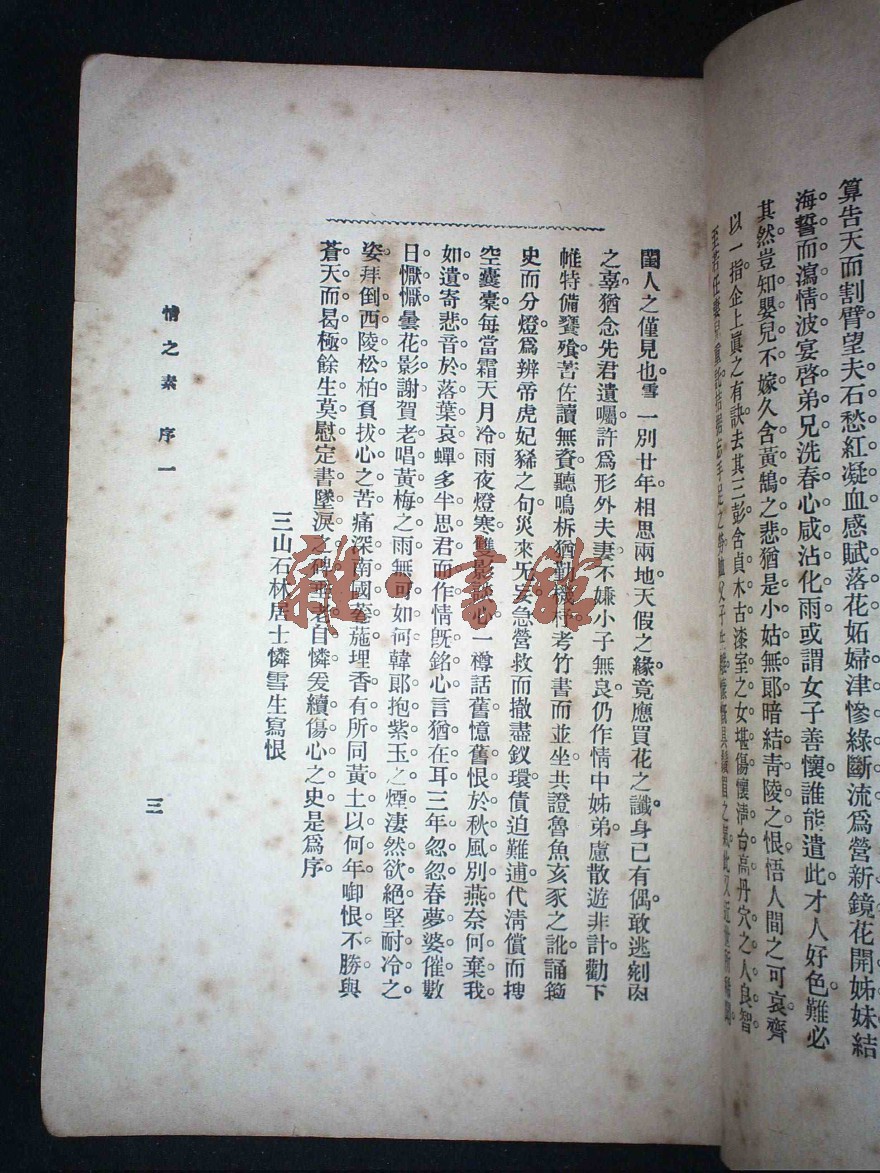 算告天而割臂望夫石愁紅凝血感賦落花妬婦津慘綠斷流爲營新鏡花開姊妹結
海誓而瀉情波宴啓弟兄洗春心咸沾化雨或謂女子善懷誰能遣此才人好色難必
其然豈知嬰兒不嫁久含黃鵠之悲猶是小姑無郎暗結青陵之恨悟人間之可哀齊
以一指企上眞之有訣去其三彭含貞木古漆室之女堪傷懷淸台高丹穴之人良智
閨人之僅見也雪一別廿年相思兩地天假之緣竟應買花之讖身已有偶敢逃剜肉
之辜猶念先君遺囑許爲形外夫妻不嫌小子無良仍作情中姊弟慮散遊非計勸下
帷特備饔飧苦佐讀無資聽鳴柝猶勤機杼考竹書而並坐共證魯魚亥豕之訛誦籀
史而分燈爲辨帝虎妃豨之句災來旡妄急營救而撤盡釵環債迫難逋代淸償而搜
空囊橐每當霜天月冷雨夜燈寒雙影心一樽話舊憶舊恨於秋風別燕奈何棄我
如遺寄悲音於落葉哀蟬多半思君而作情旣銘心言猶在耳三年忽忽春夢婆催數
日懨懨曇花影謝賀老唱黃梅之雨無可如何韓郎抱紫玉之煙淒然欲絕堅耐冷之
姿拜倒西陵松柏負拔心之苦痛深南國葹埋香有所同黃土以何年啣恨不勝與
蒼天而曷極餘生莫慰定書墜淚之碑老自憐爰續傷心之史是爲序
三山石林居士憐雪生寫恨
情之素 序一
三
雜·書館